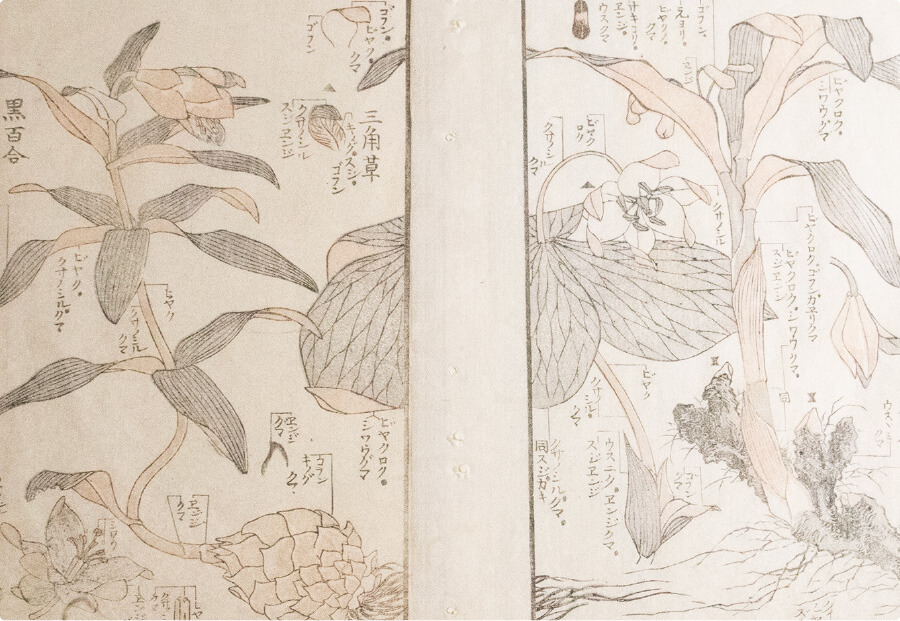 ゴフン、
元ヨリ。
サキコリ。
ヒヤリノ
クマ
ヱンジ。
ウスクマ
ヒヤクロク。
シワウグマ
ヒヤク
ロク
クサノシル
グマ
クサノシル
ヒヤクロク。ゴフンガヱリクマ
ヒヤクロク。シワウクマ。
スジヱンジ
ヒヤク
クサノシル。
クマ
ゴフン
クマ
ウスニク。ヱンジクマ。
スジヱンジ
クサノシルクマ。
同スジガキ
ゴフン。
ヒヤク。
クマ
ゴフン
三角草
キヤノグ。スジ。
ゴフン
クサノシル
スジヱンジ
黒百合
ヒヤク。
クサノシル。クマ
ヒヤク
クサノシル
クマ
ヒヤクロク。
シワウグマ
ヱンジ
クマ
ゴフン
キヤノグ
クマ
ヱンジ
クマ
シワウ